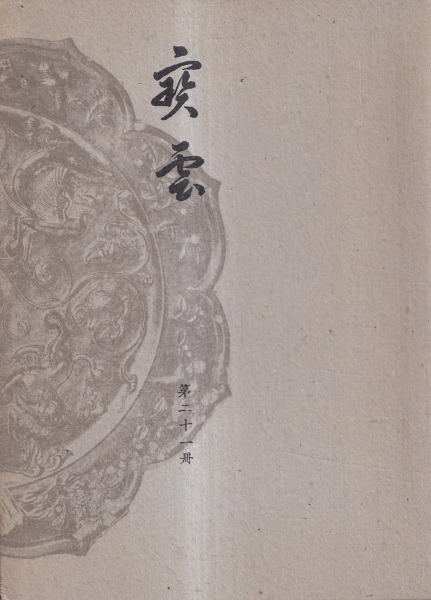 寳雲
第二十一冊